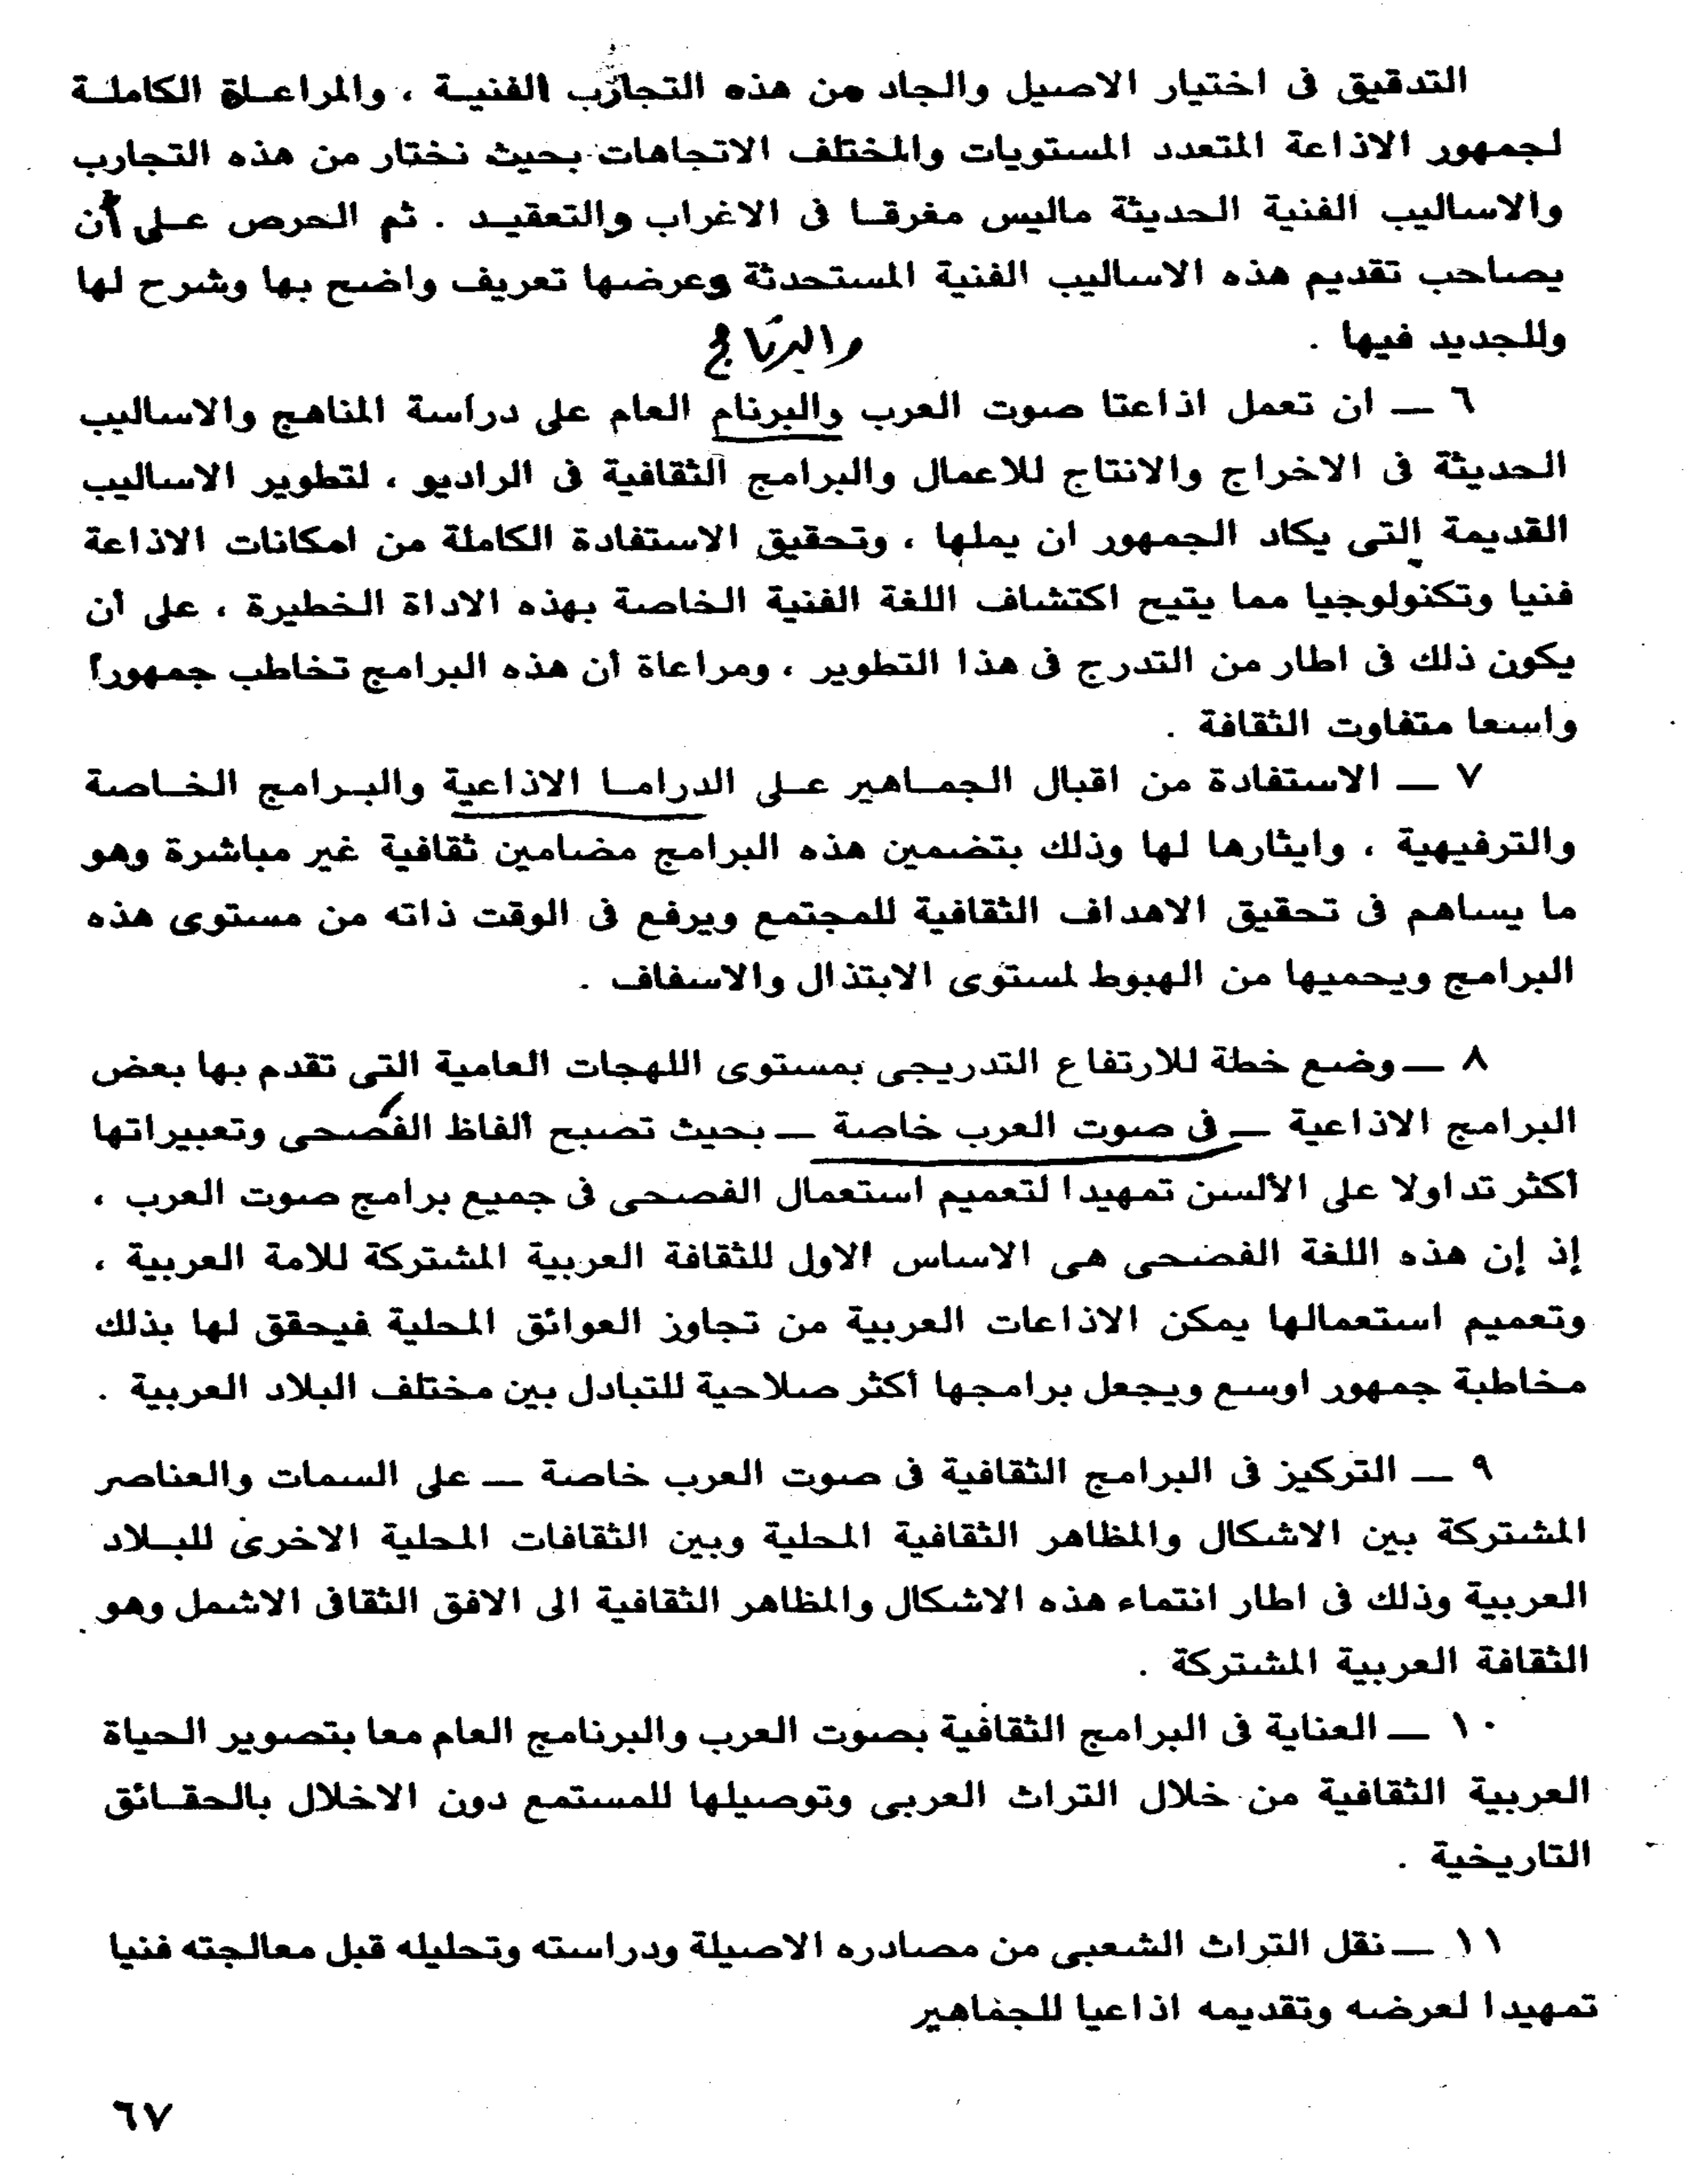 التدقيق فى اختيار الاصيل والجاد من هذه التجارب الفنيـة ، والمراعـاة الكاملـة
لجمهور الاذاعة المتعدد المستويات والمختلف الاتجاهات بحيث نختار من هذه التجارب
والاساليب الفنية الحديثة ماليس مغرقـا فى الاغراب والتعقيـد . ثم الحرص عـلى أن
يصاحب تقديم هذه الاساليب الفنية المستحدثة وعرضها تعريف واضح بها وشرح لها
وللجديد فيها .
والبرنامج
٦ ـ ان تعمل اذاعتا صوت العرب والبرنام العام على دراسة المناهج والاساليب
الحديثة فى الاخراج والانتاج للاعمال والبرامج الثقافية فى الراديو ، لتطوير الاساليب
القديمة التى يكاد الجمهور ان يملها ، وتحقيق الاستفادة الكاملة من امكانات الاذاعة
فنيا وتكنولوجيا مما يتيح اكتشاف اللغة الفنية الخاصة بهذه الاداة الخطيرة ، على أن
يكون ذلك فى اطار من التدرج فى هذا التطوير ، ومراعاة أن هذه البرامج تخاطب جمهورا
واسعا متفاوت الثقافة .
٧ ـ الاستفادة من اقبال الجمـاهير عـلى الدرامـا الاذاعية والبـرامج الخـاصة
والترفيهية ، وايثارها لها وذلك بتضمين هذه البرامج مضامين ثقافية غير مباشرة وهو
ما يساهم فى تحقيق الاهداف الثقافية للمجتمع ويرفع فى الوقت ذاته من مستوى هذه
البرامج ويحميها من الهبوط لمستوى الابتذال والاسفاف .
٨ ـ وضع خطة للارتفاع التدريجى بمستوى اللهجات العامية التى تقدم بها بعض
البرامج الاذاعية ـ فى صوت العرب خاصة ـ بحيث تصبح ألفاظ الفصحى وتعبيراتها
أكثر تداولا على الألسن تمهيدا لتعميم استعمال الفصحى فى جميع برامج صوت العرب ،
إذ إن هذه اللغة الفصحى هى الاساس الاول للثقافة العربية المشتركة للامة العربية ،
وتعميم استعمالها يمكن الاذاعات العربية من تجاوز العوائق المحلية فيحقق لها بذلك
مخاطبة جمهور اوسع ويجعل برامجها أكثر صلاحية للتبادل بين مختلف البلاد العربية .
٩ ـ التركيز فى البرامج الثقافية فى صوت العرب خاصة ـ على السمات والعناصر
المشتركة بين الاشكال والمظاهر الثقافية المحلية وبين الثقافات المحلية الاخرى للبـلاد
العربية وذلك فى اطار انتماء هذه الاشكال والمظاهر الثقافية الى الافق الثقافى الاشمل وهو
الثقافة العربية المشتركة .
١٠ ـ العناية فى البرامج الثقافية بصوت العرب والبرنامج العام معا بتصوير الحياة
العربية الثقافية من خلال التراث العربى وتوصيلها للمستمع دون الاخلال بالحقـائق
التاريخية .
١١ ـ نقل التراث الشعبى من مصادره الاصيلة ودراسته وتحليله قبل معالجته فنيا
تمهيدا لعرضه وتقديمه اذاعيا للجماهير
٦٧